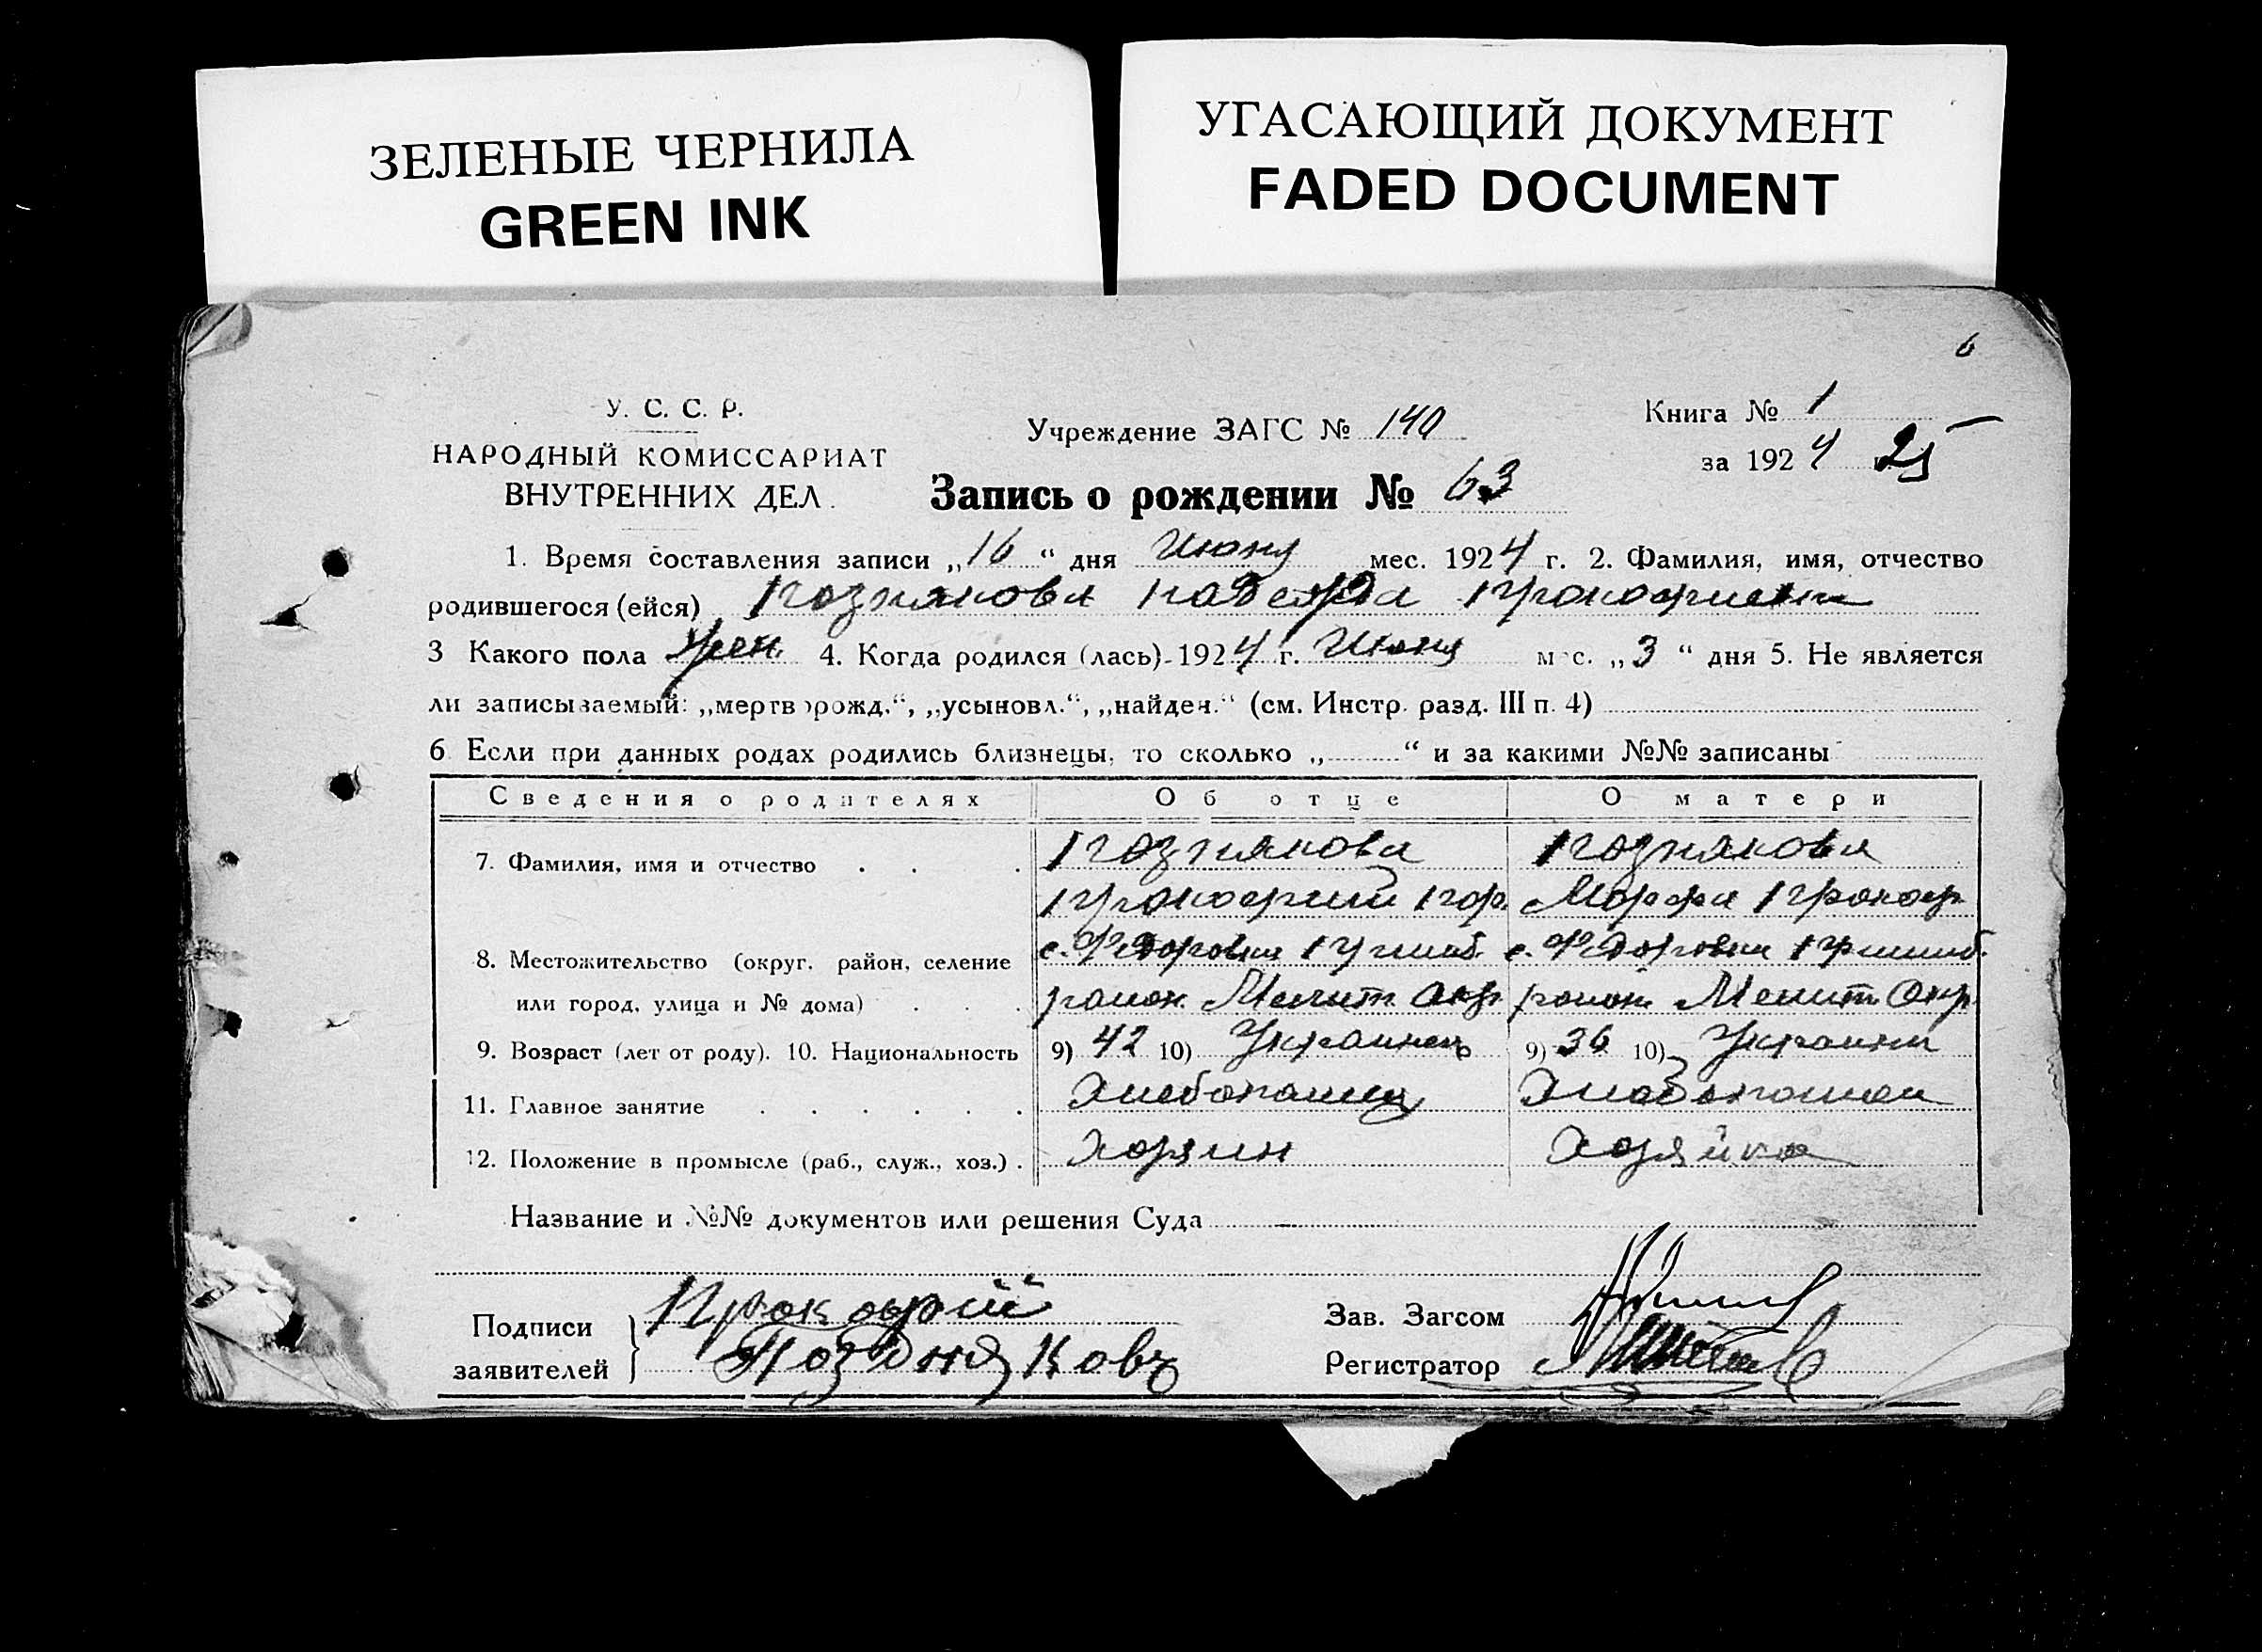 ЗЕЛЕНЫЕ ЧЕРНИЛА
GREEN INK
УГАСАЮЩИЙ ДОКУМЕНТ
FADED DOCUMENT
6
У. С. С. Р.
НАРОДНЫЙ КОМИССАРИАТ
ВНУТРЕННИХ ДЕЛ.
Учреждение ЗАГС № 140
Книга № 1
за 1924 25
Запись о рождении № 63
1. Время составления записи „16“ дня Июня мес. 1924 г. 2. Фамилия, имя, отчество
родившегося (ейся) Познякова Надежда Прокофиевна
3 Какого пола жен. 4. Когда родился (лась) 1924 г. Июня мес. „3“ дня 5. Не является
ли записываемый: „мертворожд.“, „усыновл.“, „найден.“ (см. Инстр. разд. III п. 4)
6. Если при данных родах родились близнецы, то сколько „ “ и за какими №№ записаны
Сведения о родителях Об отце О матери
7. Фамилия, имя и отчество Познякова Познякова
Прокофий Марфа Прокоф
8. Местожительство (округ, район, селение с. Федоровка Пришиб. с. Федоровка Пришиб.
или город, улица и № дома) район Мелит Окр. район Мелит Окр.
9. Возраст (лет от роду). 10. Национальность 9) 42 10) Украинець 9) 36 10) Украинк
11. Главное занятие Хлебопашец
12. Положение в промысле (раб., служ., хоз.) Хозяин Хозяйка
Название и №№ документов или решения Суда
Подписи заявителей Прокофій
Поздняковъ
Зав. Загсом
Регистратор